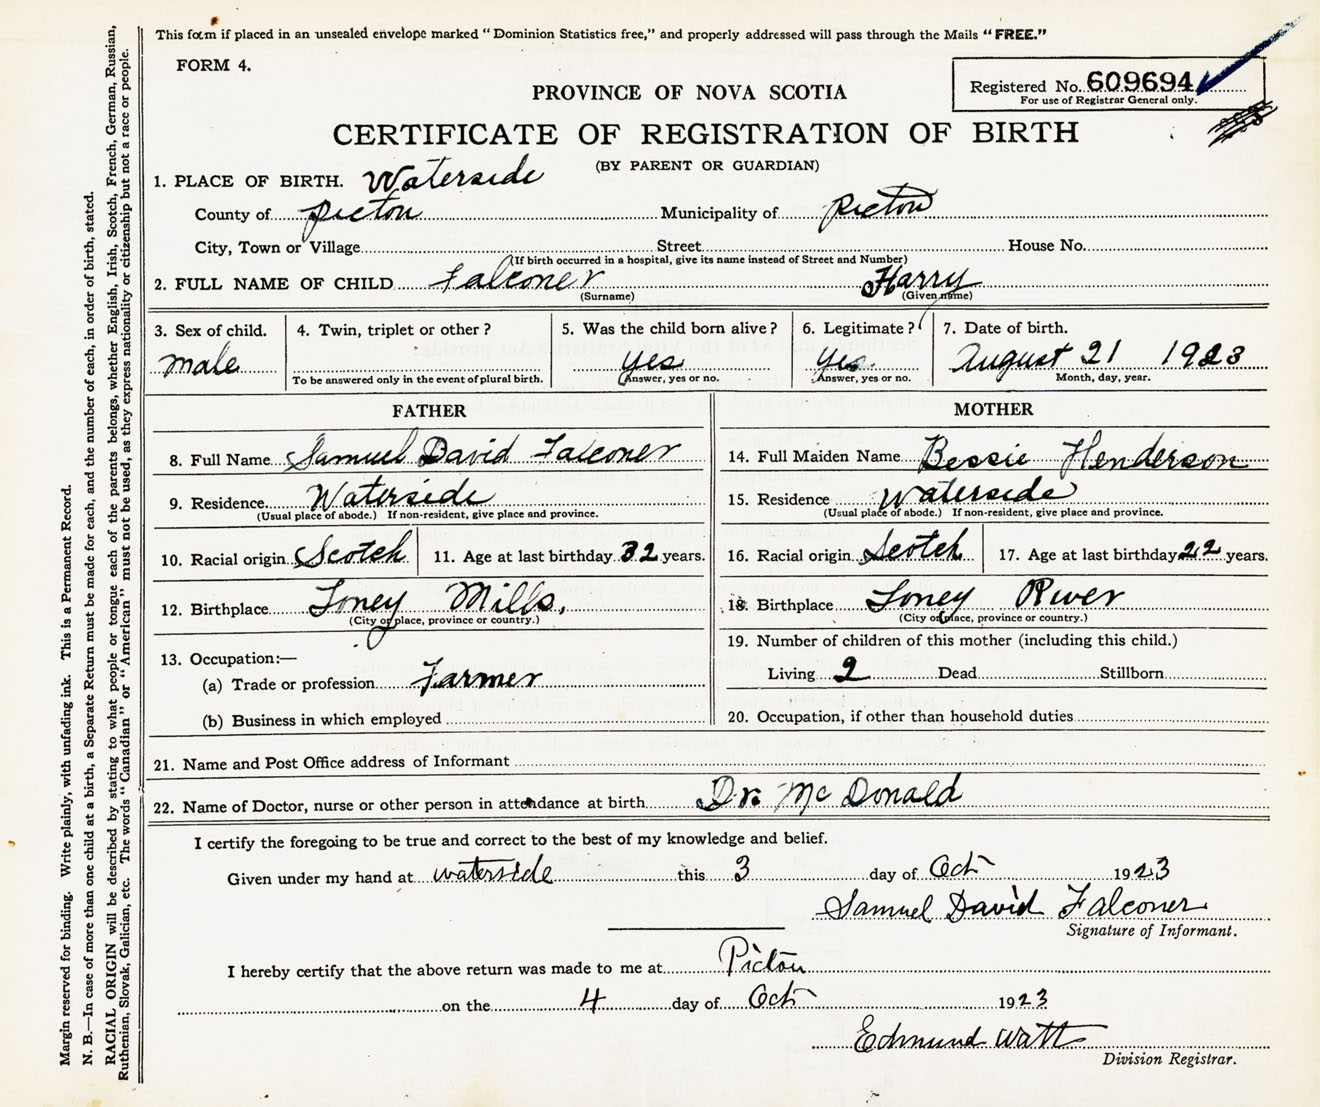 This form if placed in an unsealed envelope marked "Dominion Statistics free," and properly addressed will pass through the Mails "FREE."
FORM 4.
Registered No. 609694
For use of Registrar General only.
PROVINCE OF NOVA SCOTIA
CERTIFICATE OF REGISTRATION OF BIRTH
(BY PARENT OR GUARDIAN)
1. PLACE OF BIRTH. Waterside
County of Picton Municipality of Picton
City, Town or Village Street House No.
(If birth occurred in a hospital, give its name instead of Street and Number)
2. FULL NAME OF CHILD Falconer Harry
(Surname) (Given name)
3. Sex of child. 4. Twin, triplet or other? 5. Was the child born alive? 6. Legitimate? 7. Date of birth.
male yes yes August 21 1923
To be answered only in the event of plural birth. (Answer, yes or no. (Answer, yes or no. Month, day, year.
FATHER MOTHER
8. Full Name Samuel David Falconer 14. Full Maiden Name Bessie Henderson
9. Residence Waterside 15. Residence Waterside
(Usual place of abode.) If non-resident, give place and province. (Usual place of abode.) If non-resident, give place and province.
10. Racial origin Scotch 11. Age at last birthday 32 years. 16. Racial origin Scotch 17. Age at last birthday 22 years.
12. Birthplace Toney Mills, 18. Birthplace Toney River
(City or place, province or country.) (City or place, province or country.)
13. Occupation:— 19. Number of children of this mother (including this child.)
(a) Trade or profession Farmer Living 2 Dead Stillborn
(b) Business in which employed 20. Occupation, if other than household duties
21. Name and Post Office address of Informant
22. Name of Doctor, nurse or other person in attendance at birth Dr. McDonald
I certify the foregoing to be true and correct to the best of my knowledge and belief.
Given under my hand at waterside this 3 day of Oct 1923
Samuel David Falconer
Signature of Informant.
I hereby certify that the above return was made to me at Picton
on the 4 day of Oct 1923
Edmund Watt
Division Registrar.
Margin reserved for binding. Write plainly, with unfading ink. This is a Permanent Record.
N. B.—In case of more than one child at a birth, a Separate Return must be made for each, and the number of each, in order of birth, stated.
RACIAL ORIGIN will be described by stating to what people or tongue each of the parents belongs, whether English, Irish, Scotch, French, German, Russian,
Ruthenian, Slovak, Galician, etc. The words "Canadian" or "American" must not be used, as they express nationality or citizenship but not a race or people.